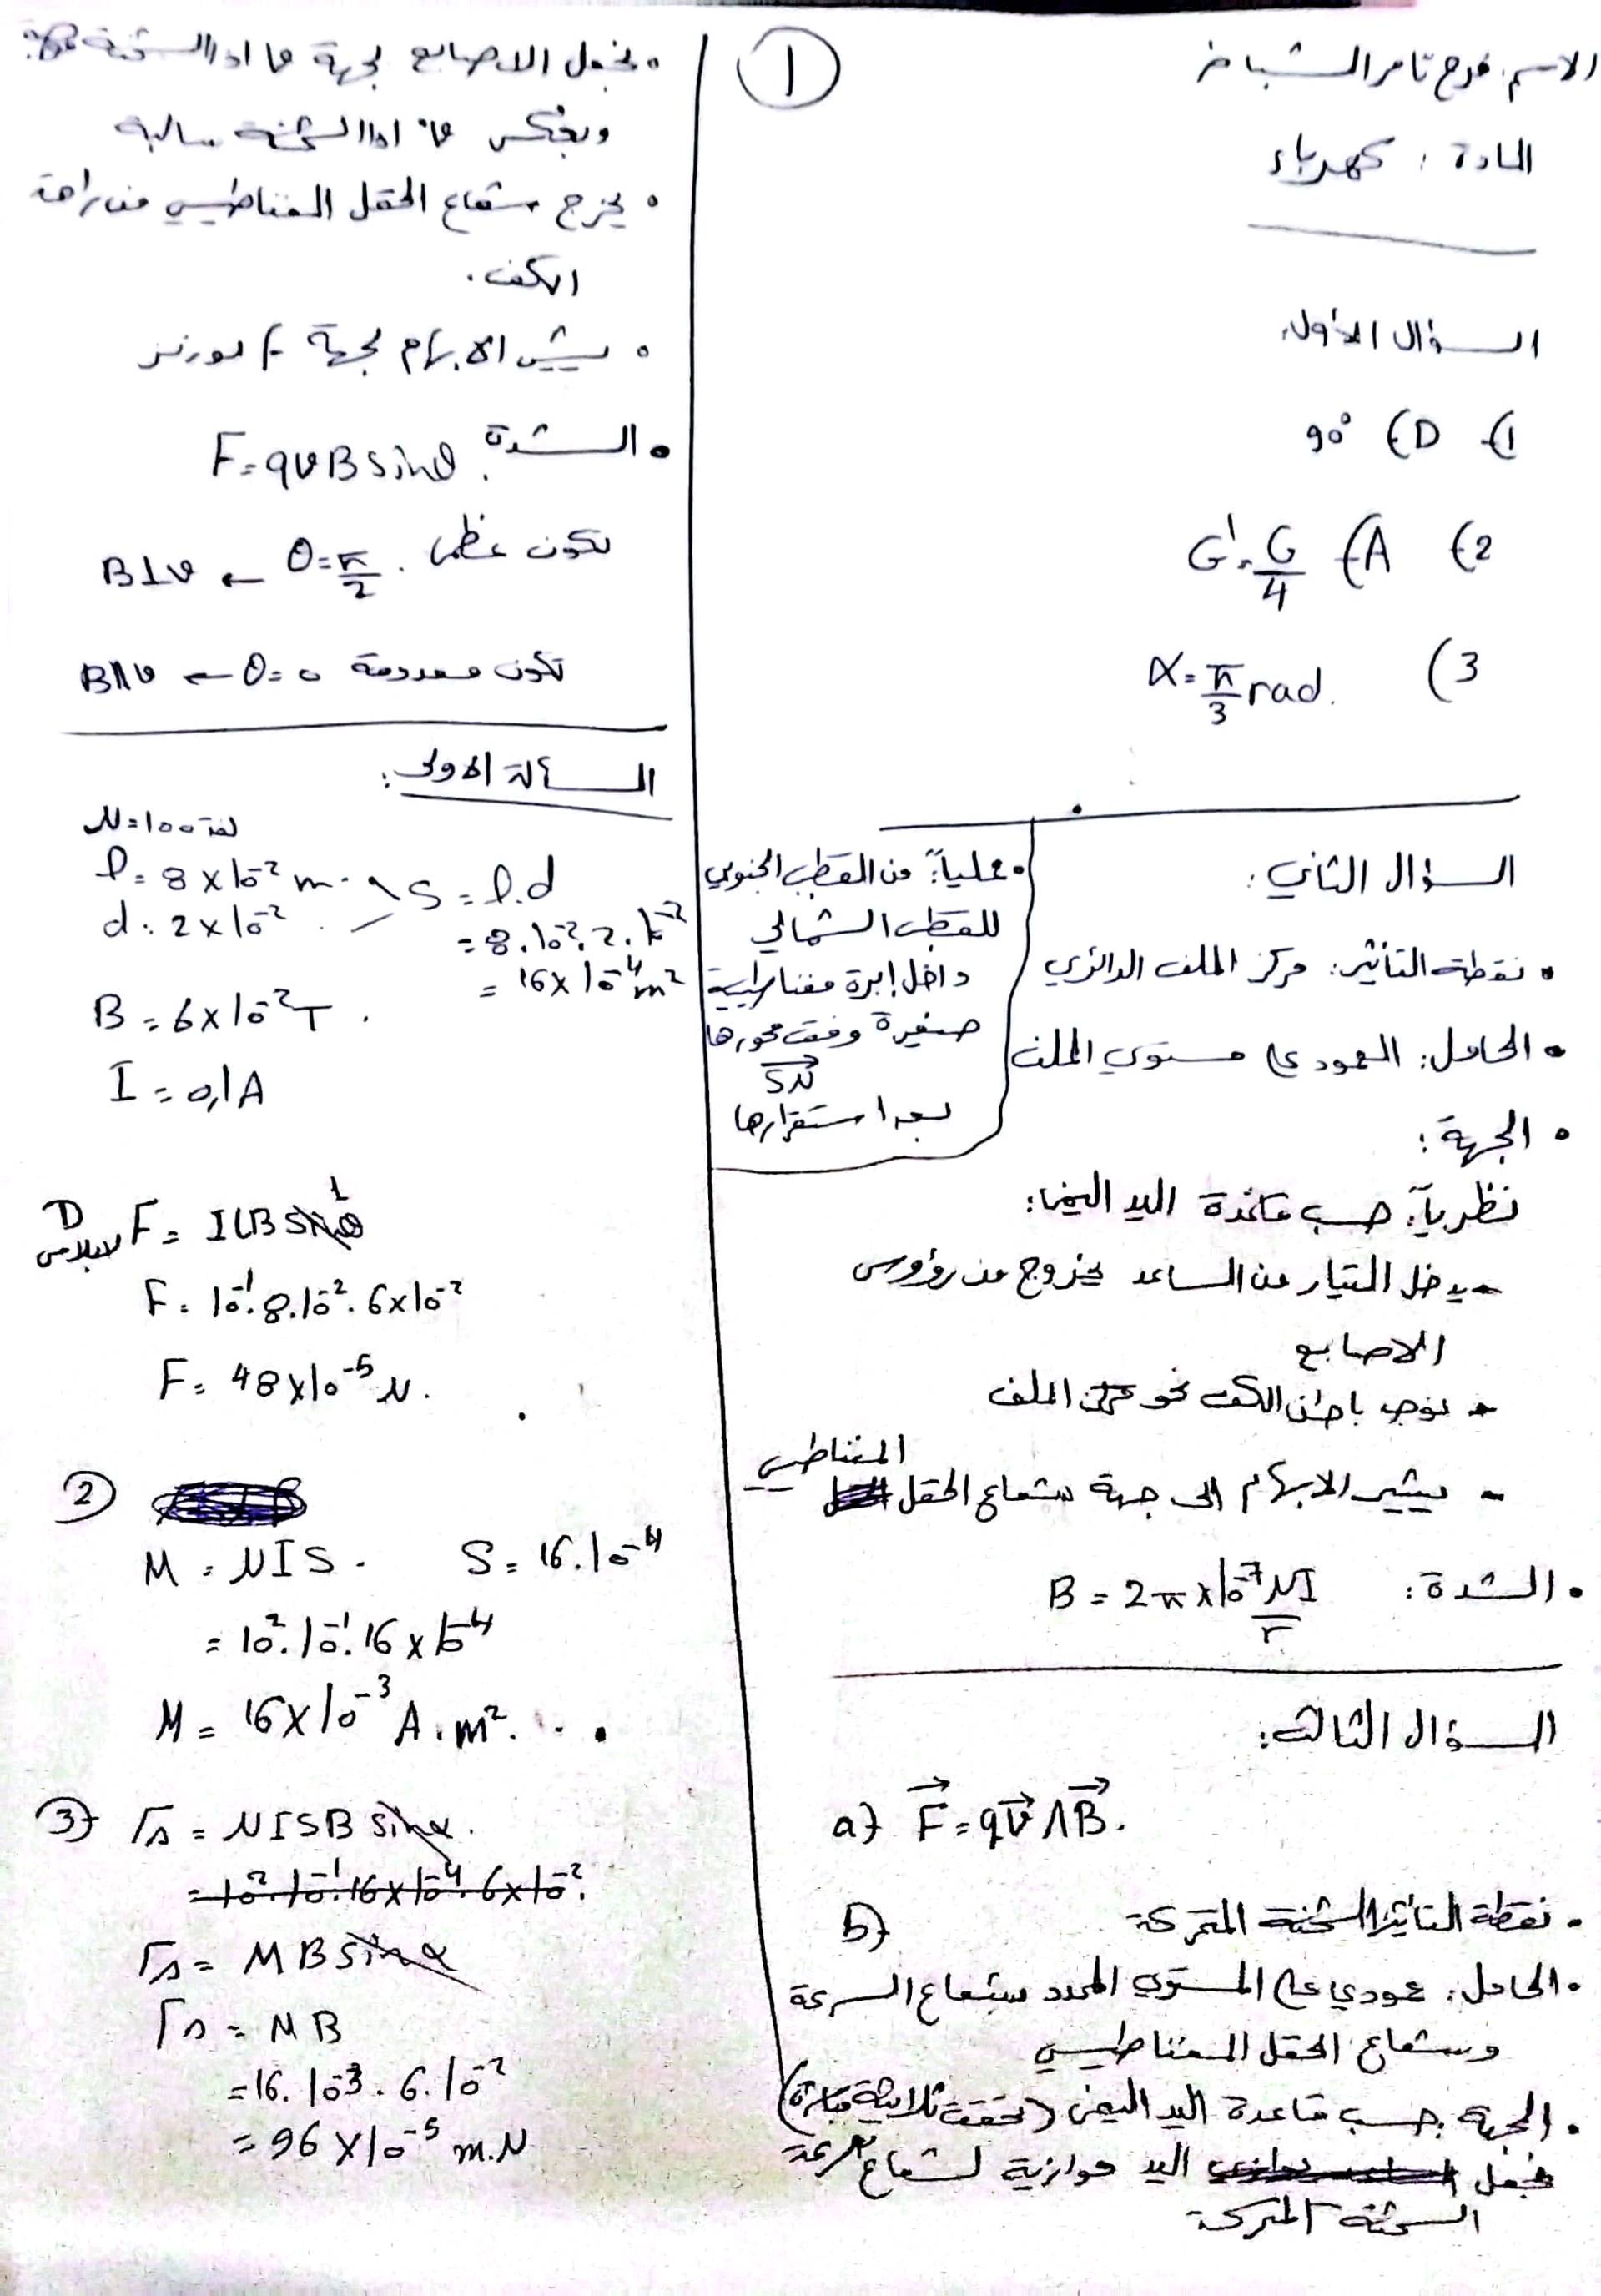 الاسم: فرح تامر الشباط
المادة: كهرباء
①
السؤال الأول:
1) D) 90°
2) A) G' = G/4
3) α = π/3 rad.
السؤال الثاني:
• نقطة التأثير: مركز الملف الدائري
• الحامل: العمودي على مستوي الملف
• الجهة:
نظرياً: حسب قاعدة اليد اليمنى:
- يدخل التيار من الساعد يخرج من رؤوس
الاصابع
- نوجه باطن الكف نحو مركز الملف
- يشير الابهام الى جهة شعاع الحقل المغناطيسي
• الشدة: B = 2π×10⁻⁷ NI/r
• عملياً: من القطب الجنوبي
للقطب الشمالي
داخل إبرة مغناطيسية
صغيرة وفق محورها
SN
بعد استقرارها
السؤال الثالث:
a) F = qv ∧ B.
b) • نقطة التأثير: الشحنة المتحركة
• الحامل: عمودي على المستوي المحدد بشعاع السرعة
وشعاع الحقل المغناطيسي
• الجهة: حسب قاعدة اليد اليمنى (تحقق ثلاثية مباشرة)
نجعل اليد موازية لشعاع سرعة
الشحنة المتحركة
• نجعل الاصابع بجهة v اذا الشحنة
وبعكس v اذا الشحنة سالبة
• يخرج شعاع الحقل المغناطيسي من راحة
الكف.
• يشير الابهام لجهة F لورنز
• الشدة: F = qvB sinθ
تكون عظمى. θ = π/2 ← B⊥v
تكون معدومة θ = 0 ← B∥v
المسألة الاولى:
N = 100 لفة
l = 8×10⁻² m.
d = 2×10⁻²
S = l.d
= 8.10⁻².2.10⁻²
= 16×10⁻⁴ m²
B = 6×10⁻² T.
I = 0,1 A
1) F لابلاس = ILB sinθ 1
F = 10⁻¹.8.10⁻².6×10⁻²
F = 48×10⁻⁵ N.
② M = NIS. S = 16.10⁻⁴
= 10².10⁻¹.16×10⁻⁴
M = 16×10⁻³ A.m².
③ Γ∆ = NISB sinα.
= 10².10⁻¹.16×10⁻⁴.6×10⁻².
Γ∆ = MB sinα
Γ∆ = MB
= 16.10⁻³.6.10⁻²
= 96×10⁻⁵ m.N